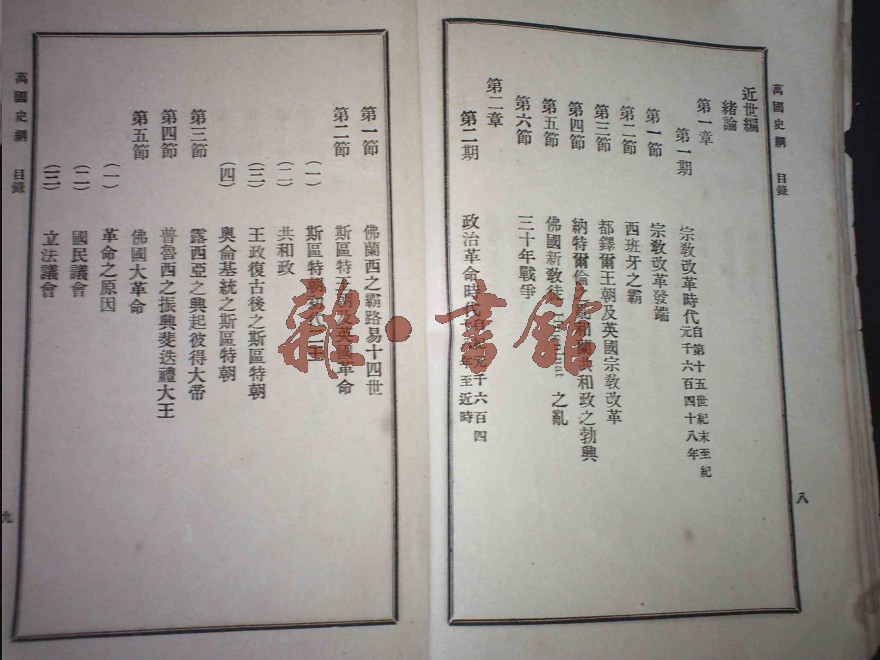 萬國史綱 目錄
近世編
緒論
第一章
第一期 宗敎改革時代 自第十五世紀末至紀元千六百四十八年
第一節 宗敎改革發端
第二節 西班牙之霸
第三節 都鐸爾王朝及英國宗敎改革
第四節 納特爾倫 和蘭共和政之勃興
第五節 佛國新敎徒 之亂
第六節 三十年戰爭
第二章
第二期 政治革命時代 元千六百四 年至近時
八
第一節 佛蘭西之霸路易十四世
第二節 斯區特王朝及英國革命
(一) 斯區特朝 二王
(二) 共和政
(三) 王政復古後之斯區特朝
(四) 奧侖基統之斯區特朝
第三節 露西亞之興起彼得大帝
第四節 普魯西之振興斐迭禮大王
第五節 佛國大革命
(一) 革命之原因
(二) 國民議會
(三) 立法議會
萬國史綱 目錄
九
雜·書館